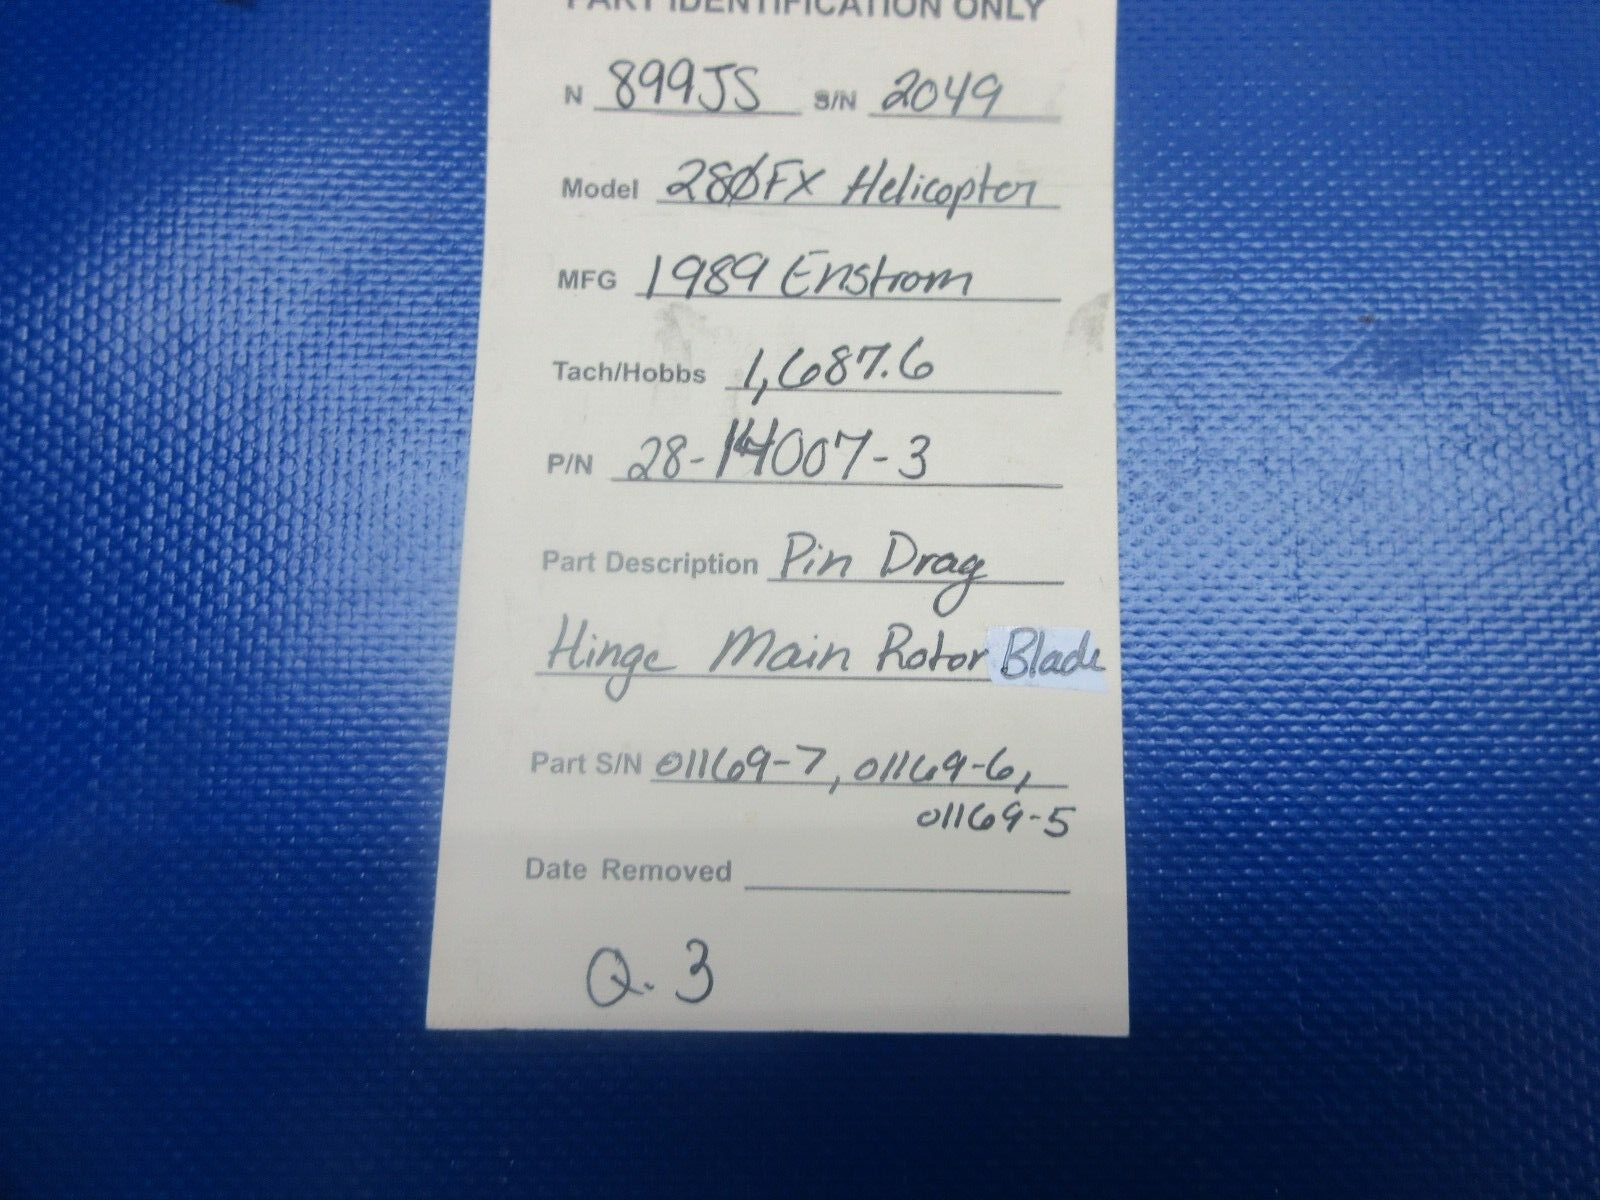 PART IDENTIFICATION ONLY
N 899JS S/N 2049
Model 280FX Helicopter
MFG 1989 Enstrom
Tach/Hobbs 1,687.6
P/N 28-14007-3
Part Description Pin Drag
Hinge Main Rotor Blade
Part S/N 01169-7, 01169-6,
01169-5
Date Removed
Q. 3